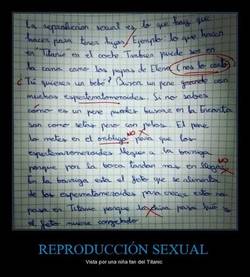 La reproducción sexual es lo que hay que
hacer para tener hijos. Ejemplo lo que hacen
en Titanic en el coche. También puede ser en
la cama como los papas de Elena (nos lo contó)
¿Tú quieres un bebé? Buscas un pene grande con
muchos espermatomeroides. Si no sabes
cómo es un pene puedes buscarlo en la Encarta
son como setas pero con pelos. El pene
lo metes en el NO para que los
espermatomeroides lleguen a la barriga
porque por la boca tardan mas en llegar NO
En la barriga esta el feto que se alimenta
de los espermatomeroides para crecer, esto no
pasa en Titanic porque hacía frio
el feto muere congelado
REPRODUCCIÓN SEXUAL
Vista por una niña fan del Titanic